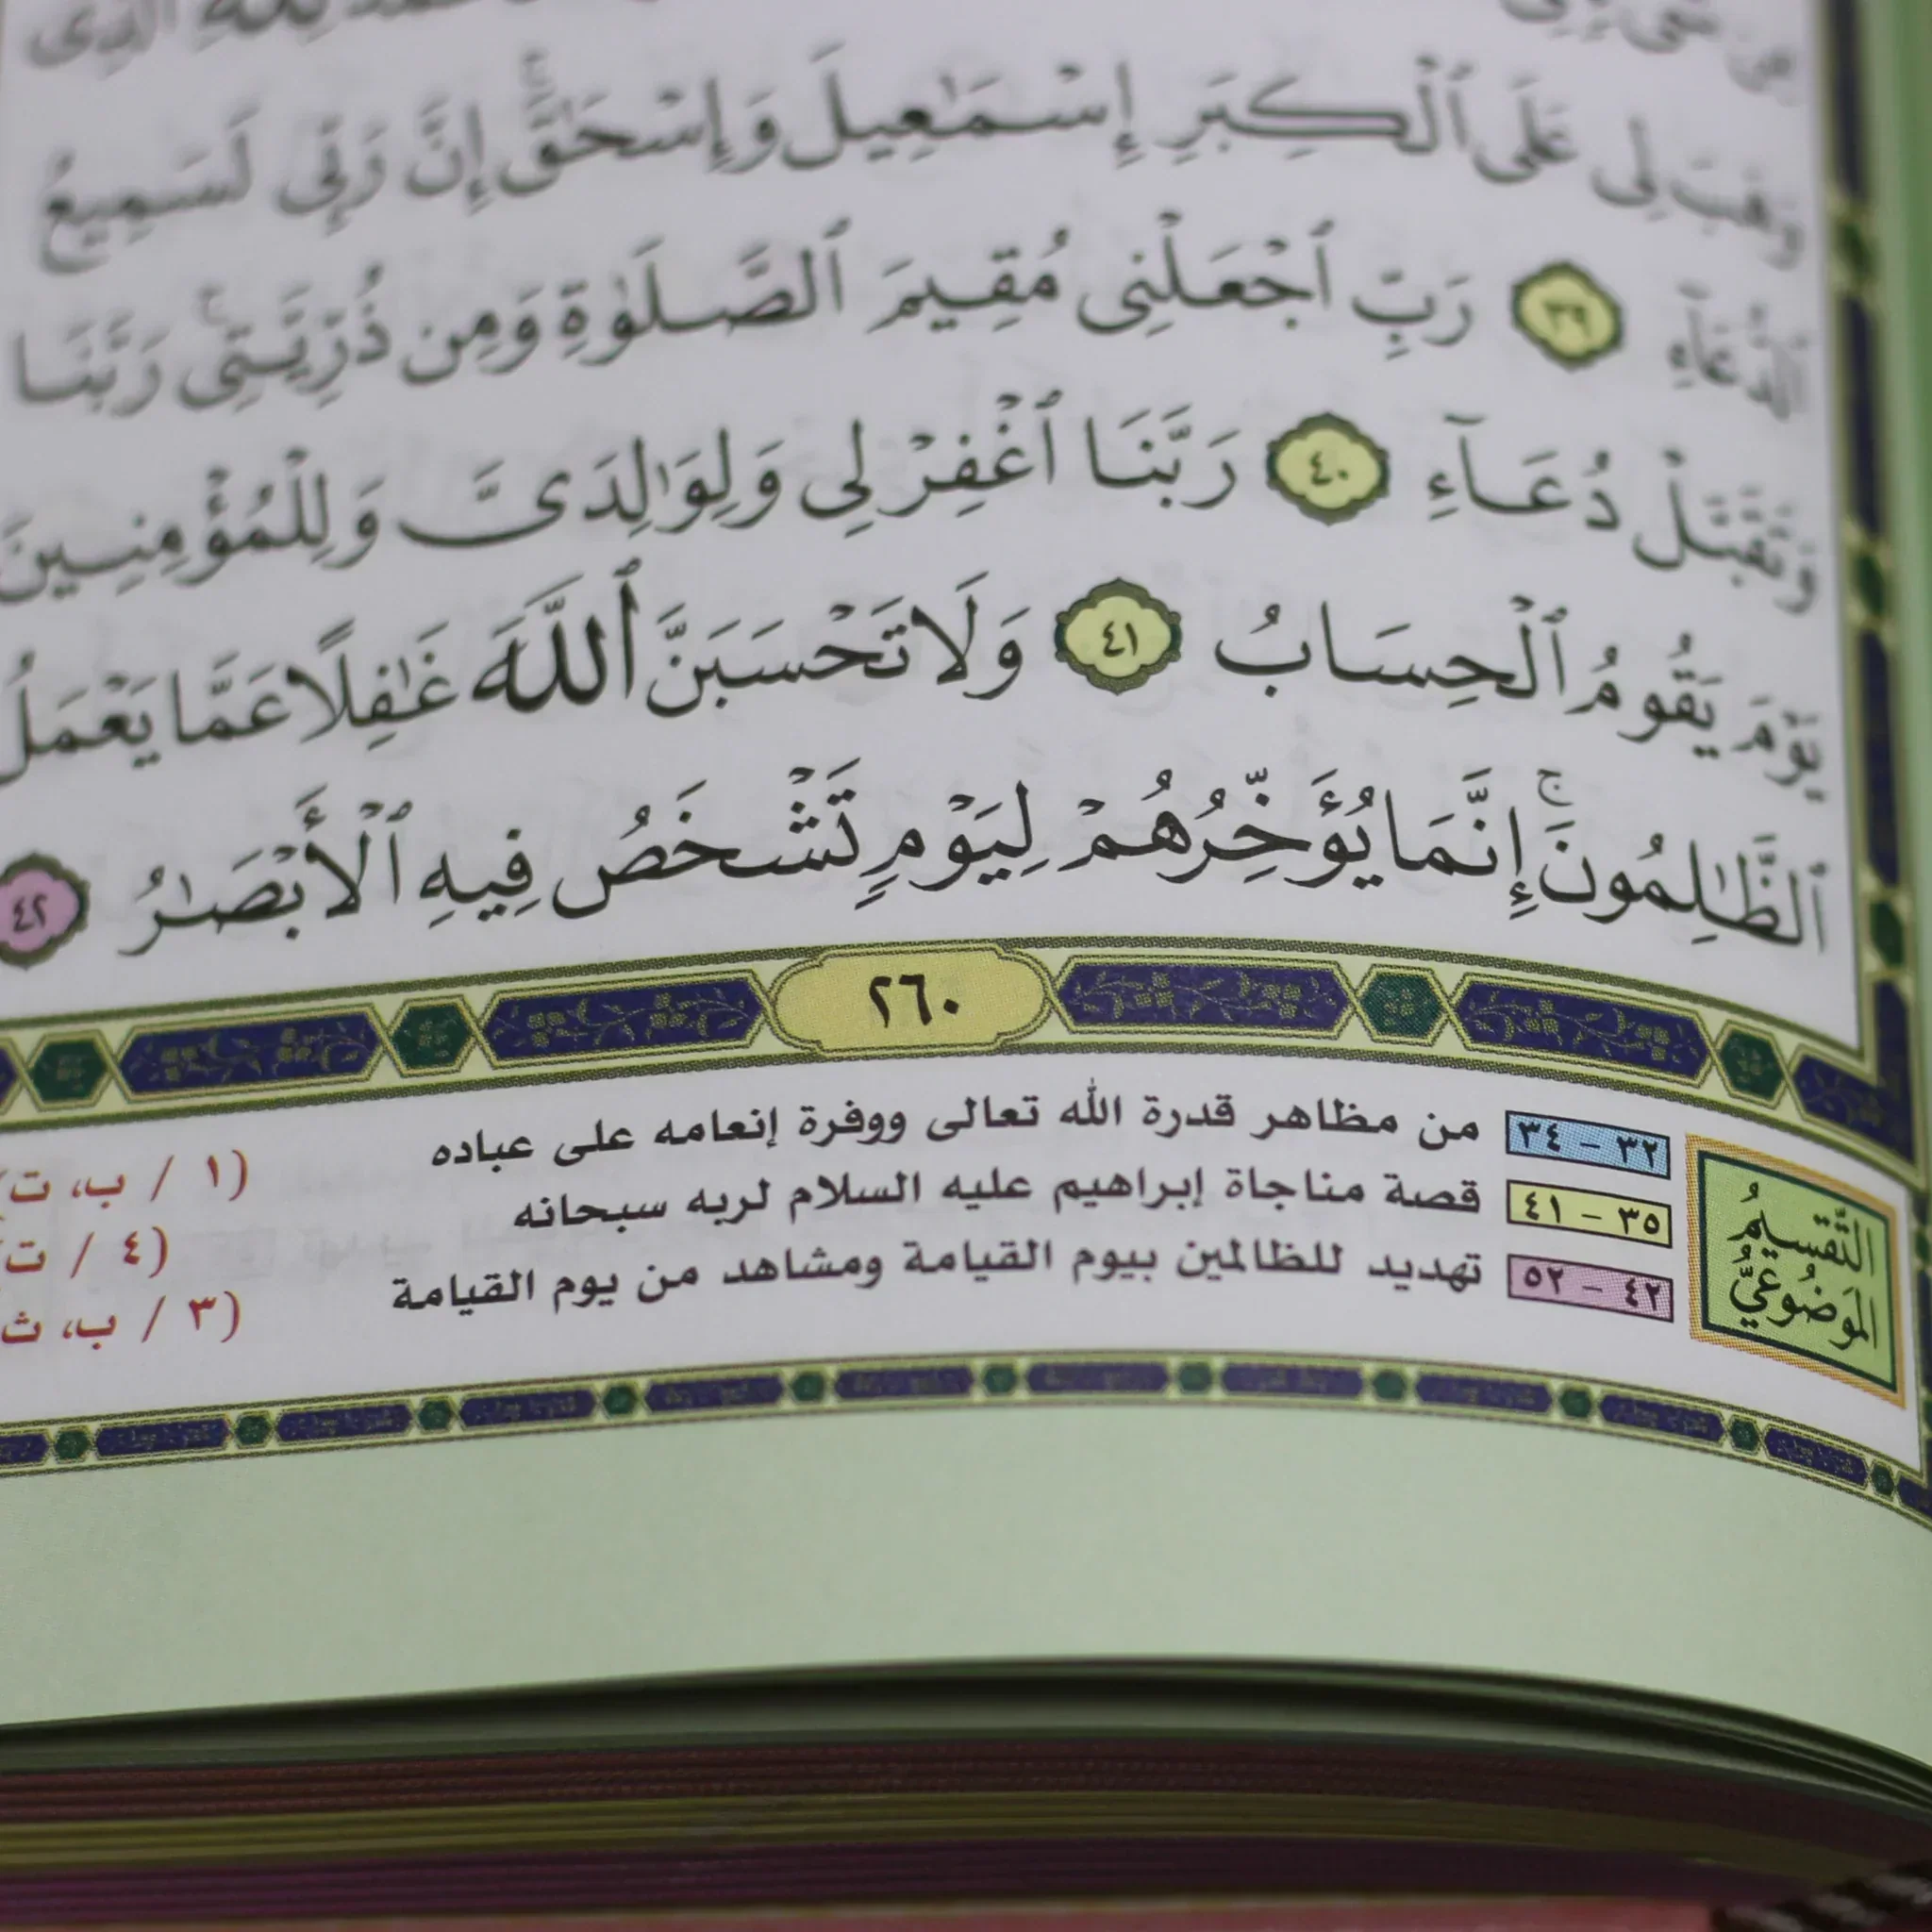 وَهَبَ لِى عَلَى ٱلْكِبَرِ إِسْمَٰعِيلَ وَإِسْحَٰقَۚ إِنَّ رَبِّى لَسَمِيعُ
ٱلدُّعَآءِ ٣٩ رَبِّ ٱجْعَلْنِى مُقِيمَ ٱلصَّلَوٰةِ وَمِن ذُرِّيَّتِىۚ رَبَّنَا
وَتَقَبَّلْ دُعَآءِ ٤٠ رَبَّنَا ٱغْفِرْ لِى وَلِوَٰلِدَىَّ وَلِلْمُؤْمِنِينَ
يَوْمَ يَقُومُ ٱلْحِسَابُ ٤١ وَلَا تَحْسَبَنَّ ٱللَّهَ غَٰفِلًا عَمَّا يَعْمَلُ
ٱلظَّٰلِمُونَۚ إِنَّمَا يُؤَخِّرُهُمْ لِيَوْمٍ تَشْخَصُ فِيهِ ٱلْأَبْصَٰرُ ٤٢
٢٦٠
التَّقسيمُ
المَوضُوعيُّ
٣٢ - ٣٤ من مظاهر قدرة الله تعالى ووفرة إنعامه على عباده (١ / ب، ت)
٣٥ - ٤١ قصة مناجاة إبراهيم عليه السلام لربه سبحانه (٤ / ت)
٤٢ - ٥٢ تهديد للظالمين بيوم القيامة ومشاهد من يوم القيامة (٣ / ب، ث